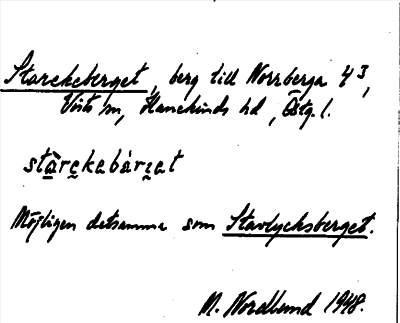 Starekeberget, berg till Norrberga 4³,
Vists sn, Hanekinds hd, Östg. l.
stàrekebàrʒet
Möjligen detsamma som Stavlycksberget.
N. Nordlund 1948.